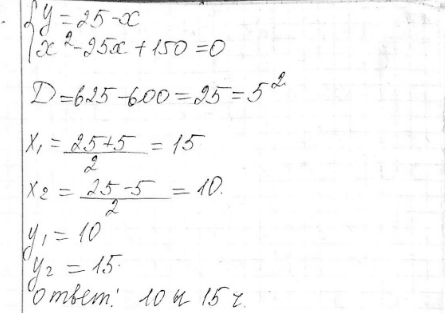 {y = 25 - x
x² - 25x + 150 = 0
D = 625 - 600 = 25 = 5²
x₁ = (25+5)/2 = 15
x₂ = (25-5)/2 = 10.
y₁ = 10
y₂ = 15.
Ответ: 10 и 15 ч.